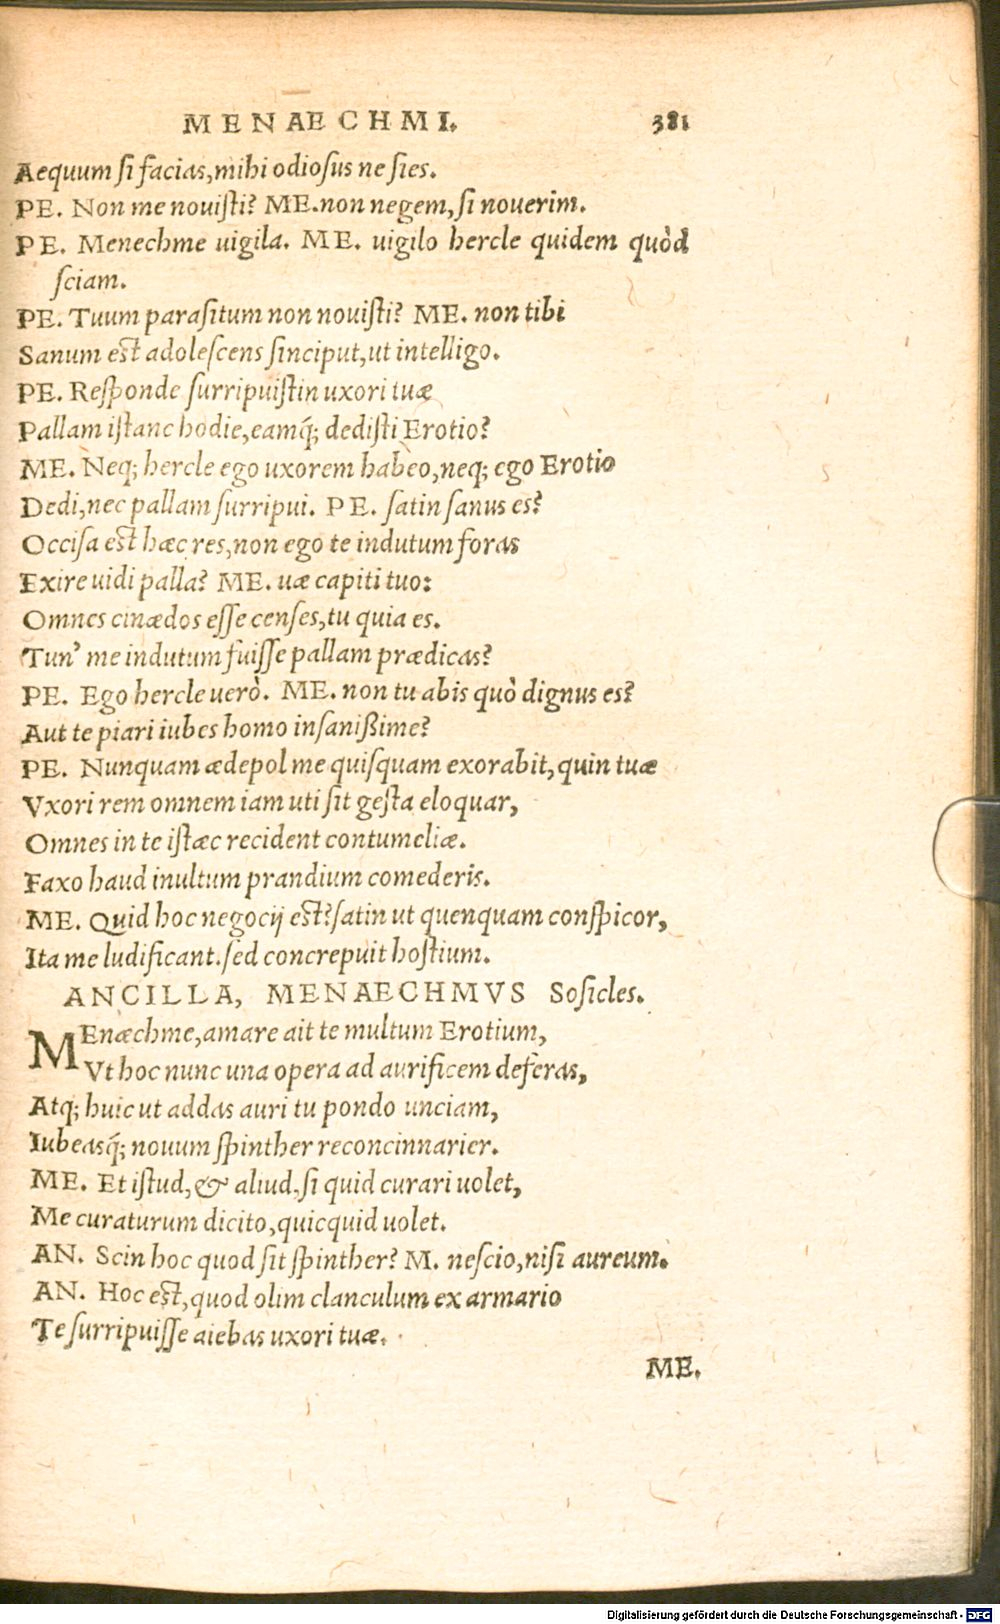 MENAECHMI. 381
Aequum si facias, mihi odiosus ne sies.
PE. Non me nouisti? ME. non negem, si nouerim.
PE. Menechme uigila. ME. uigilo hercle quidem quòd
sciam.
PE. Tuum parasitum non nouisti? ME. non tibi
Sanum est adolescens sinciput, ut intelligo.
PE. Responde surripuistin uxori tuæ
Pallam istanc hodie, eamq́; dedisti Erotio?
ME. Neq; hercle ego uxorem habeo, neq; ego Erotio
Dedi, nec pallam surripui. PE. satin sanus es?
Occisa est hæc res, non ego te indutum foras
Exire uidi palla? ME. uæ capiti tuo:
Omnes cinædos esse censes, tu quia es.
Tun' me indutum fuisse pallam prædicas?
PE. Ego hercle uerò. ME. non tu abis quò dignus es?
Aut te piari iubes homo insanißime?
PE. Nunquam ædepol me quisquam exorabit, quin tuæ
Vxori rem omnem iam uti sit gesta eloquar,
Omnes in te istæc recident contumeliæ.
Faxo haud inultum prandium comederis.
ME. Quid hoc negocij est? satin ut quenquam conspicor,
Ita me ludificant. sed concrepuit hostium.
ANCILLA, MENAECHMVS Sosicles.
MEnæchme, amare ait te multum Erotium,
Vt hoc nunc una opera ad aurificem deferas,
Atq; huic ut addas auri tu pondo unciam,
Iubeasq́; nouum spinther reconcinnarier.
ME. Et istud, & aliud, si quid curari uolet,
Me curaturum dicito, quicquid uolet.
AN. Scin hoc quod sit spinther? M. nescio, nisi aureum.
AN. Hoc est, quod olim clanculum ex armario
Te surripuisse aiebas uxori tuæ.
ME.
Digitalisierung gefördert durch die Deutsche Forschungsgemeinschaft - DFG